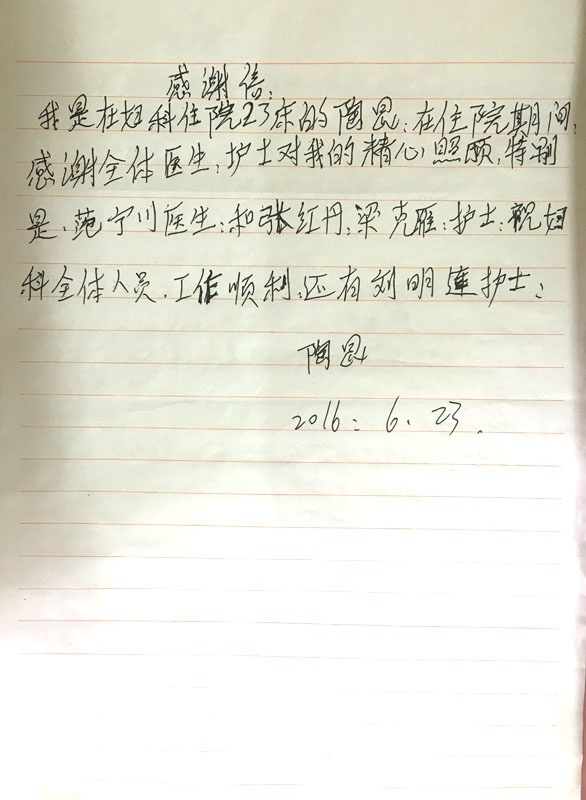 感谢信:
我是在妇科住院23床的陶昆:在住院期间:
感谢全体医生:护士对我的精心照顾,特别
是.范宁川医生:和张红丹:梁克雁:护士:祝妇
科全体人员.工作顺利:还有刘明莲护士:
陶昆
2016: 6. 23.